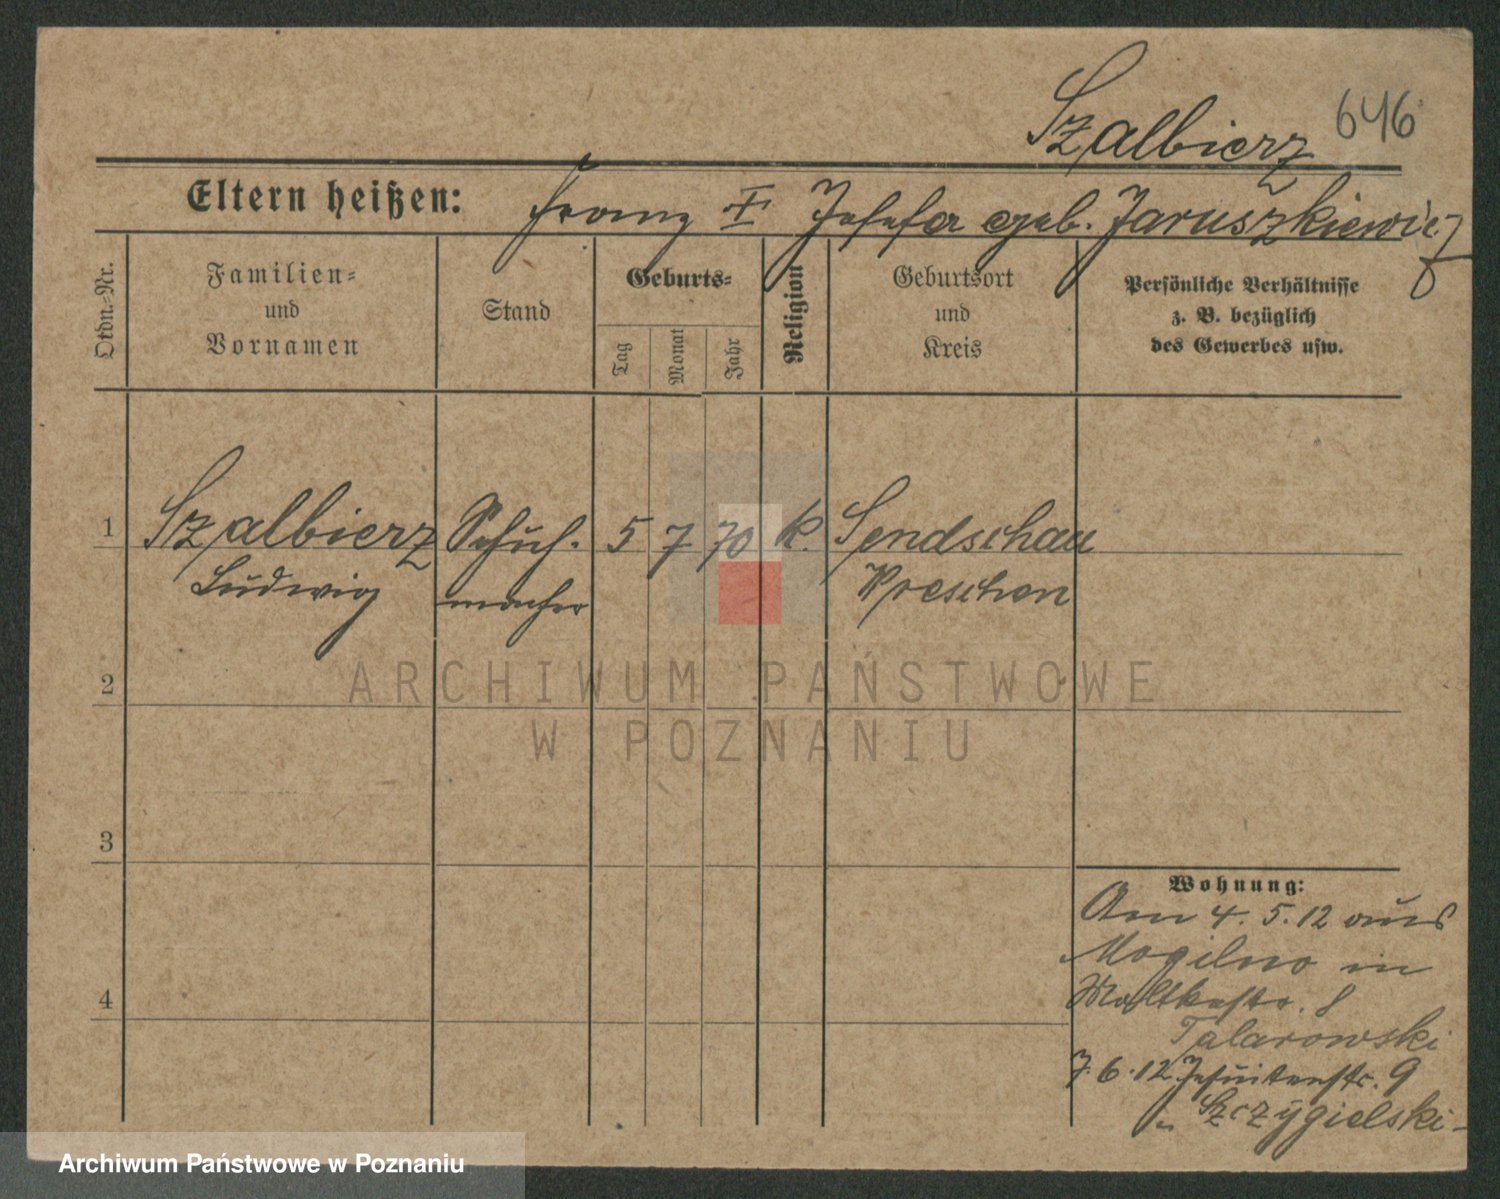 Szalbierz
646
Eltern heißen: Franz I Josefa geb. Jaruszkiewicz
Ordn.-Nr.
Familien-
und
Vornamen
Stand
Geburts-
Tag
Monat
Jahr
Religion
Geburtsort
und
Kreis
Persönliche Verhältnisse
z. B. bezüglich
des Gewerbes usw.
1 Szalbierz Schuh- 5 7 70 k. Sendschau
Ludwig macher Wreschen
2
ARCHIWUM PAŃSTWOWE
W POZNANIU
3
4
Wohnung:
Am 4. 5. 12 aus
Mogilno in
Moltkestr. 8
Talarowski
7. 6. 12 Jesuitenstr. 9
Szczygielski
Archiwum Państwowe w Poznaniu